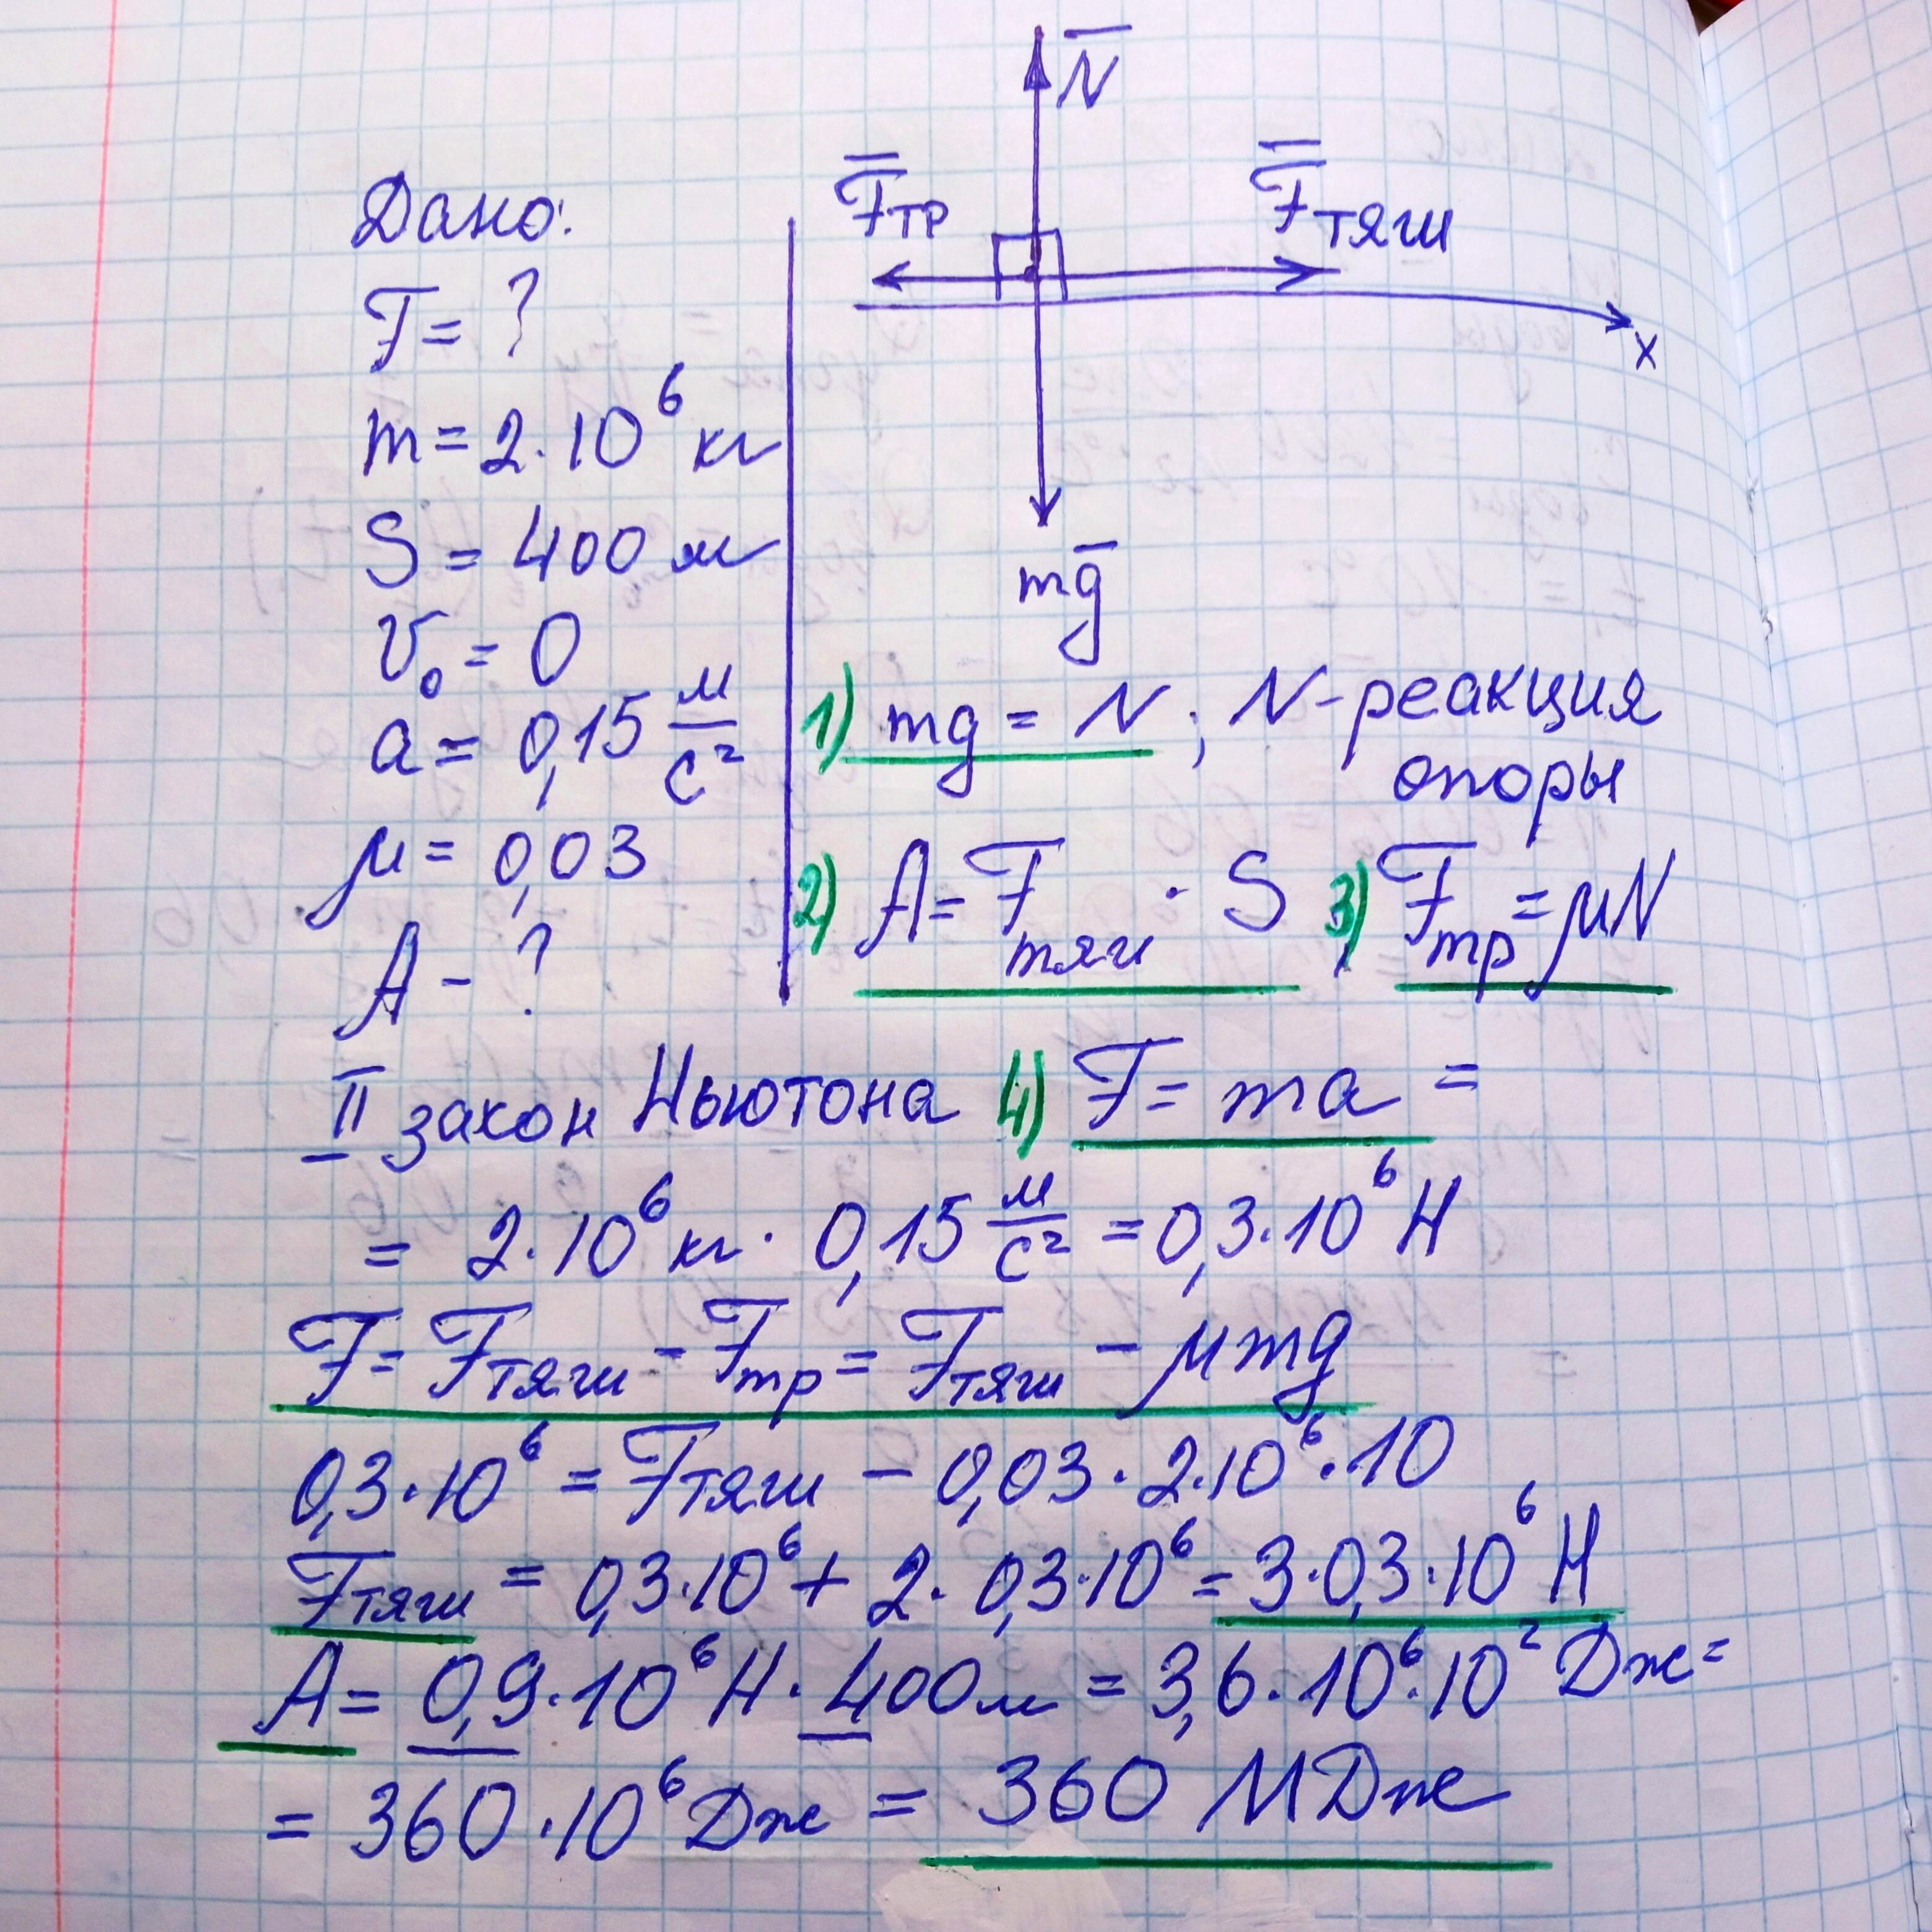 N̅
F̅тр
F̅тяги
x
mg̅
Дано:
F = ?
m = 2·10⁶ кг
S = 400 м
v₀ = 0
a = 0,15 м/с²
μ = 0,03
A - ?
1) mg = N ; N - реакция
опоры
2) A = Fтяги · S 3) Fтр = μN
II закон Ньютона 4) F = ma =
= 2·10⁶ кг · 0,15 м/с² = 0,3·10⁶ Н
F = Fтяги - Fтр = Fтяги - μmg
0,3·10⁶ = Fтяги - 0,03·2·10⁶·10
Fтяги = 0,3·10⁶ + 2·0,3·10⁶ = 3·0,3·10⁶ Н
A = 0,9·10⁶ Н · 400 м = 3,6·10⁶·10² Дж =
= 360·10⁶ Дж = 360 МДж